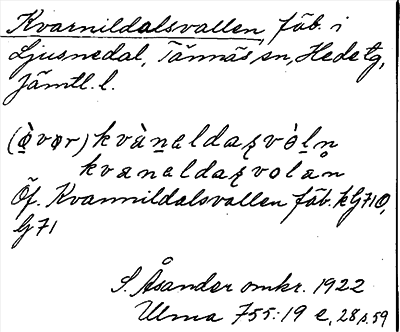 Kvarnildalsvallen, fäb. i
Ljusnedal, Tännäs sn, Hede tg,
Jämtl. l.
(òvər) kvàn̥aldaʂvòl̥n
kvanaldaʂvolån
Öf. Kvarnnildalsvallen fäb. k G710,
G71
S. Åsander omkr. 1922
Ulma 755:19 e, 28, s. 59